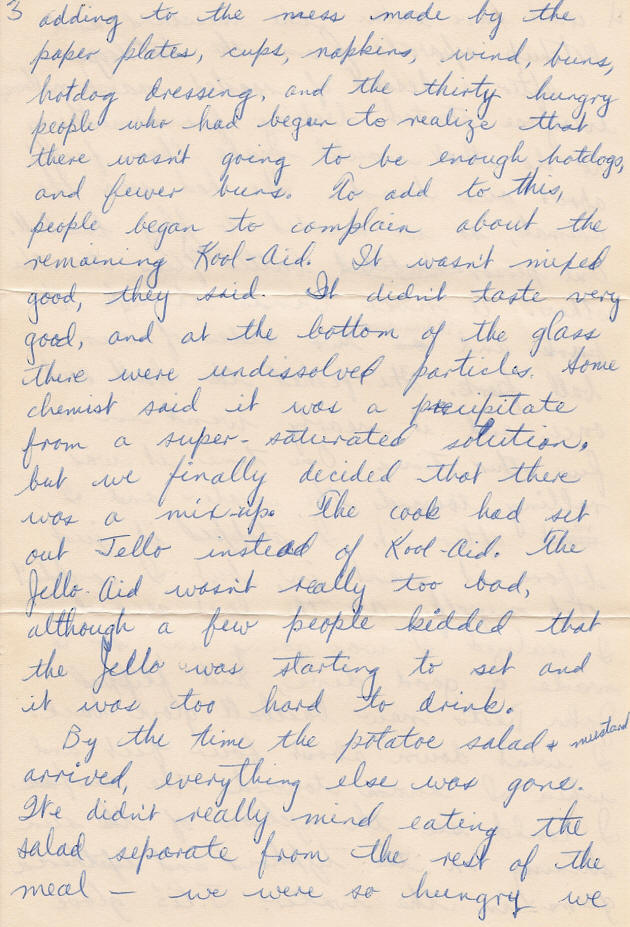 3 adding to the mess made by the
paper plates, cups, napkins, wind, buns,
hotdog dressing, and the thirty hungry
people who had begun to realize that
there wasn't going to be enough hotdogs,
and fewer buns. To add to this,
people began to complain about the
remaining Kool-Aid. It wasn't mixed
good, they said. It didn't taste very
good, and at the bottom of the glass
there were undissolved particles. Some
chemist said it was a precipitate
from a super-saturated solution.
but we finally decided that there
was a mix-up. The cook had set
out Jello instead of Kool-Aid. The
Jello-Aid wasn't really too bad,
although a few people kidded that
the Jello was starting to set and
it was too hard to drink.
By the time the potatoe salad & mustard
arrived, everything else was gone.
We didn't really mind eating the
salad separate from the rest of the
meal — we were so hungry we